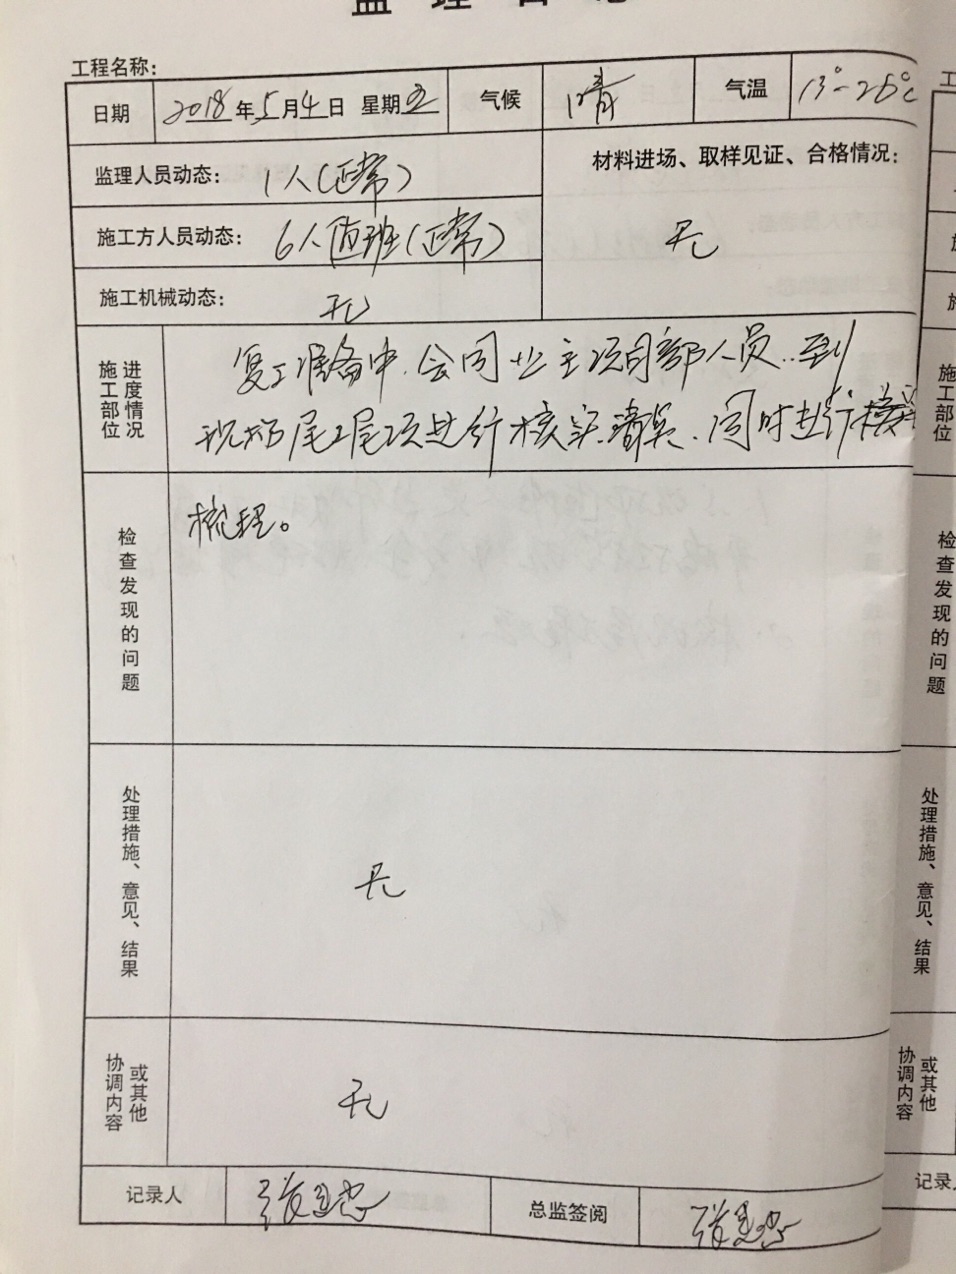 监理日志
工程名称:
日期 2018年5月4日 星期五 气候 晴 气温 13°-26°C
监理人员动态: 1人(正常)
材料进场、取样见证、合格情况:
无
施工方人员动态: 6人值班(正常)
施工机械动态: 无
进度情况
施工部位
复工准备中,会同业主项目部人员..到
现场尾工尾项进行核实清算、同时进行
检查发现的问题
梳理。
处理措施、意见、结果
无
或其他
协调内容
无
记录人 总监签阅
工
施
施工部位
检查发现的问题
处理措施、意见、结果
或其他
协调内容
记录